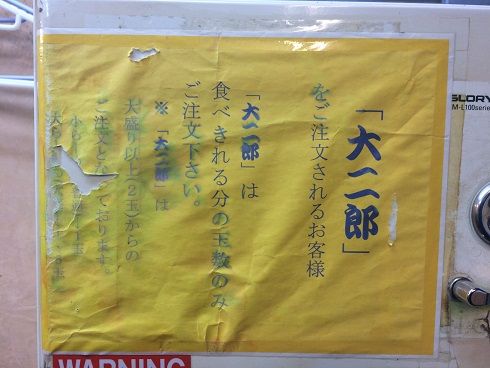 「大二郎」
をご注文されるお客様
「大二郎」は
食べきれる分の玉数のみ
ご注文下さい。
※「大二郎」は
大盛り以上(2玉)からの
ご注文と　ております。
GLORY
M-L100series
WARNING